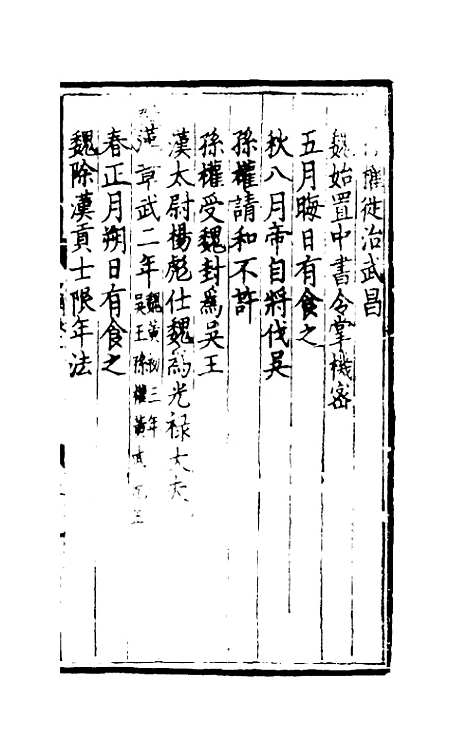 權徙治武昌
魏始置中書令掌機密
五月晦日有食之
秋八月帝自將伐吳
孫權請和不許
孫權受魏封爲吳王
漢太尉楊彪仕魏爲光祿大夫
漢章武二年魏黃初三年吳王孫權黃武元年
春正月朔日有食之
魏除漢貢士限年法